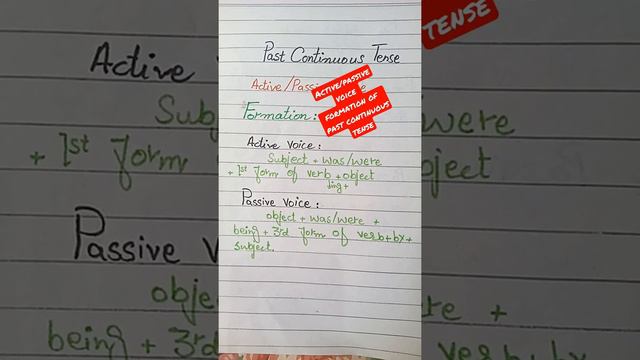 Past Continuous Tense
Active/Passi
ACTIVE/PASSIVE
VOICE
FORMATION OF
PAST CONTINUOUS
TENSE
Formation:
Active Voice:
Subject + was/were
+ 1st Form of verb + object
ing +
Passive Voice:
object + was/were +
being + 3rd form of verb + by +
subject.
TENSE
Active
Sub
were
+ 1st Form
object
Passive V
obje
ere +
being + 3rd
verb + by +